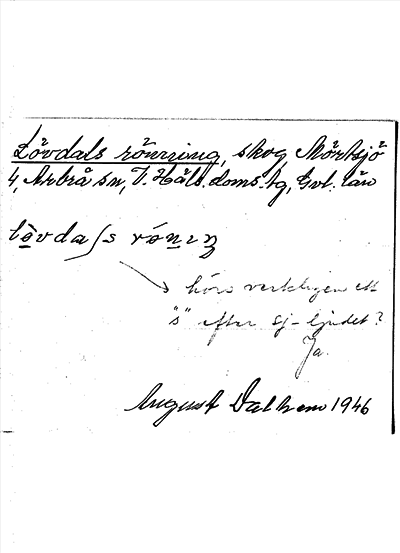 Lövdals rönning, skog, Mörtsjö
4, Arbrå sn, V. Häls. doms. tg, Gvl. län
lòvdaʃs rónıŋ
hörs verkligen ett
"s" efter sj-ljudet?
Ja.
August Dalhem 1946